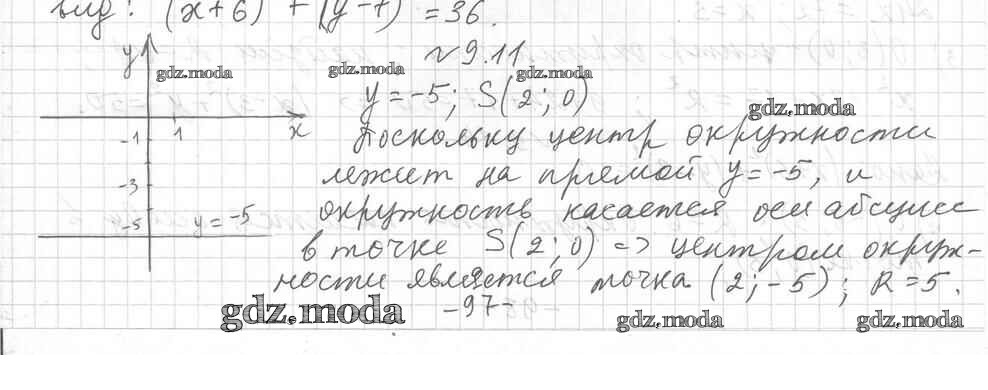 вид: (x+6) + (y-7) = 36.
№9.11.
y
gdz.moda gdz.moda gdz.moda
y = -5; S(2; 0)
gdz.moda
-1 1 x
Поскольку центр окружности
лежит на прямой y = -5, и
-3
окружность касается оси абсцисс
-5 y = -5
в точке S(2; 0) => центром окруж-
ности является точка (2; -5); R = 5.
-97-
gdz.moda gdz.moda gdz.moda